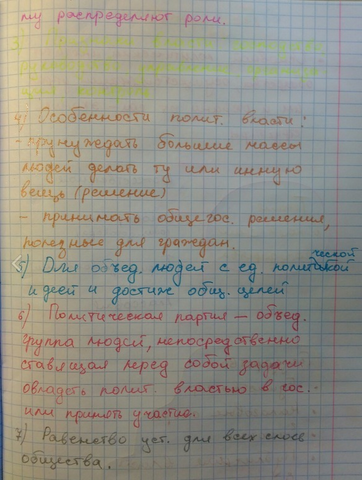 му распределяют роли.
3)
4) Особенности полит. власти:
- принуждать большие массы
людей делать ту или инную
вещь (решение)
- принимать общегос. решения,
полезные для граждан.
5) Для объед. людей с ед. политической
идеей и достиж общ. целей
6) Политическая партия — объед.
группа людей, непосредственно
ставящая перед собой задачи
овладеть полит. властью в гос.
или принять участие.
7) Равенство уст. для всех слоев
общества.